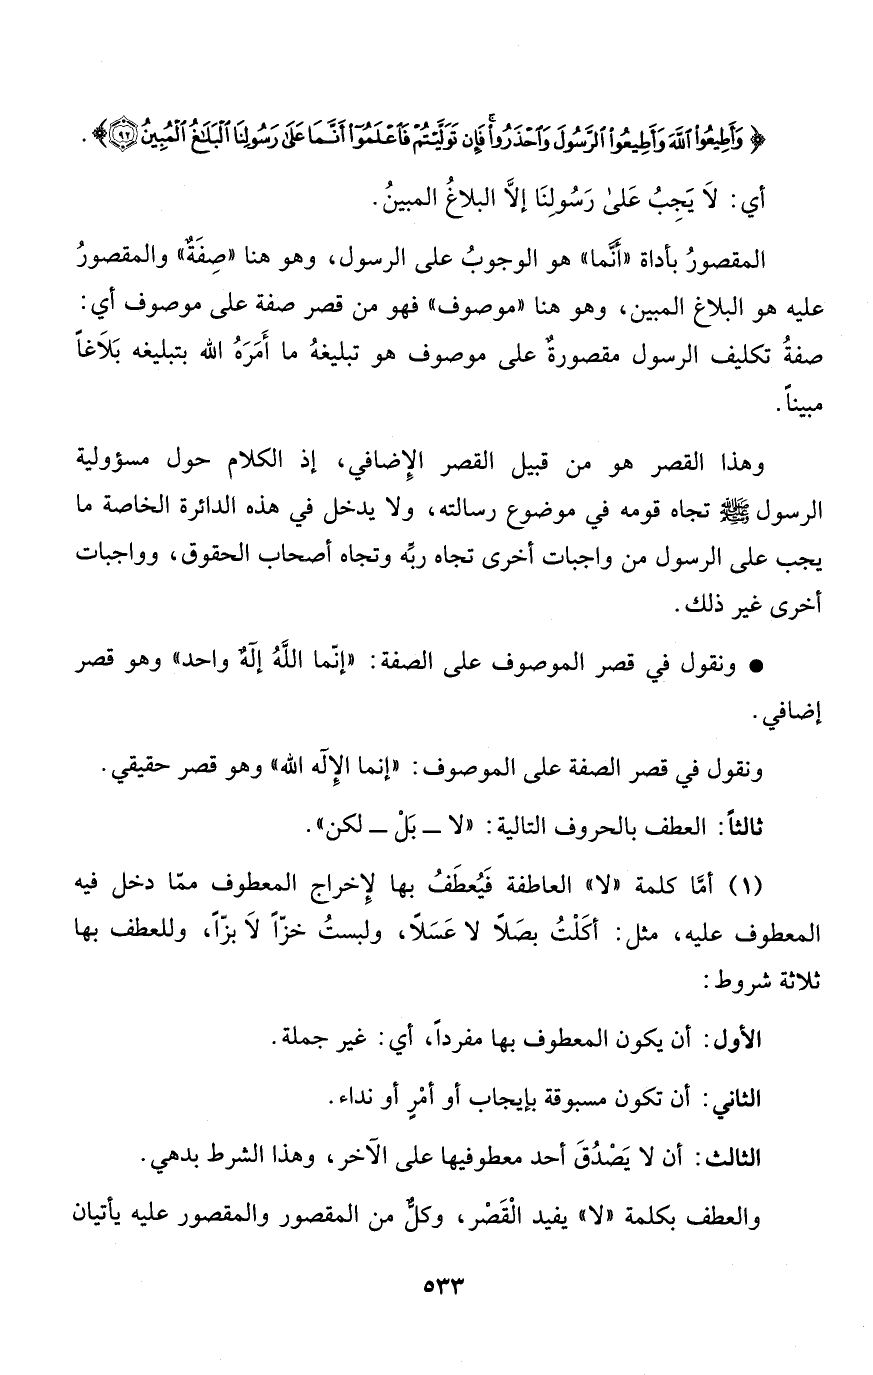 ﴿ وَأَطِيعُوا۟ ٱللَّهَ وَأَطِيعُوا۟ ٱلرَّسُولَ وَٱحْذَرُوا۟ۚ فَإِن تَوَلَّيْتُمْ فَٱعْلَمُوٓا۟ أَنَّمَا عَلَىٰ رَسُولِنَا ٱلْبَلَٰغُ ٱلْمُبِينُ ٩٢﴾ .
أي: لاَ يَجِبُ عَلىٰ رَسُولِنَا إلاَّ البلاغُ المبينُ.
المقصورُ بأداة «أَنَّما» هو الوجوبُ على الرسول، وهو هنا «صِفَةٌ» والمقصورُ
عليه هو البلاغ المبين، وهو هنا «موصوف» فهو من قصر صفة على موصوف أي:
صفةُ تكليف الرسول مقصورةٌ على موصوف هو تبليغهُ ما أَمَرَهُ الله بتبليغه بَلَاَغاً
مبيناً.
وهذا القصر هو من قبيل القصر الإِضافي، إذ الكلام حول مسؤولية
الرسول ﷺ تجاه قومه في موضوع رسالته، ولا يدخل في هذه الدائرة الخاصة ما
يجب على الرسول من واجبات أخرى تجاه ربِّه وتجاه أصحاب الحقوق، وواجبات
أخرى غير ذلك.
● ونقول في قصر الموصوف على الصفة: «إنّما اللَّهُ إلَهٌ واحد» وهو قصر
إضافي.
ونقول في قصر الصفة على الموصوف: «إنما الإِلَه الله» وهو قصر حقيقي.
ثالثاً: العطف بالحروف التالية: «لا ــ بَلْ ــ لكن».
(١) أمَّا كلمة «لا» العاطفة فَيُعطَفُ بها لِإخراج المعطوف ممّا دخل فيه
المعطوف عليه، مثل: أكَلْتُ بصَلاً لا عَسَلاً، ولبستُ خزّاً لاَ بزّاً، وللعطف بها
ثلاثة شروط:
الأول: أن يكون المعطوف بها مفرداً، أي: غير جملة.
الثاني: أن تكون مسبوقة بإيجاب أو أمْرٍ أو نداء.
الثالث: أن لا يَصْدُقَ أحد معطوفيها على الآخر، وهذا الشرط بدهي.
والعطف بكلمة «لا» يفيد الْقَصْر، وكلٌّ من المقصور والمقصور عليه يأتيان
٥٣٣